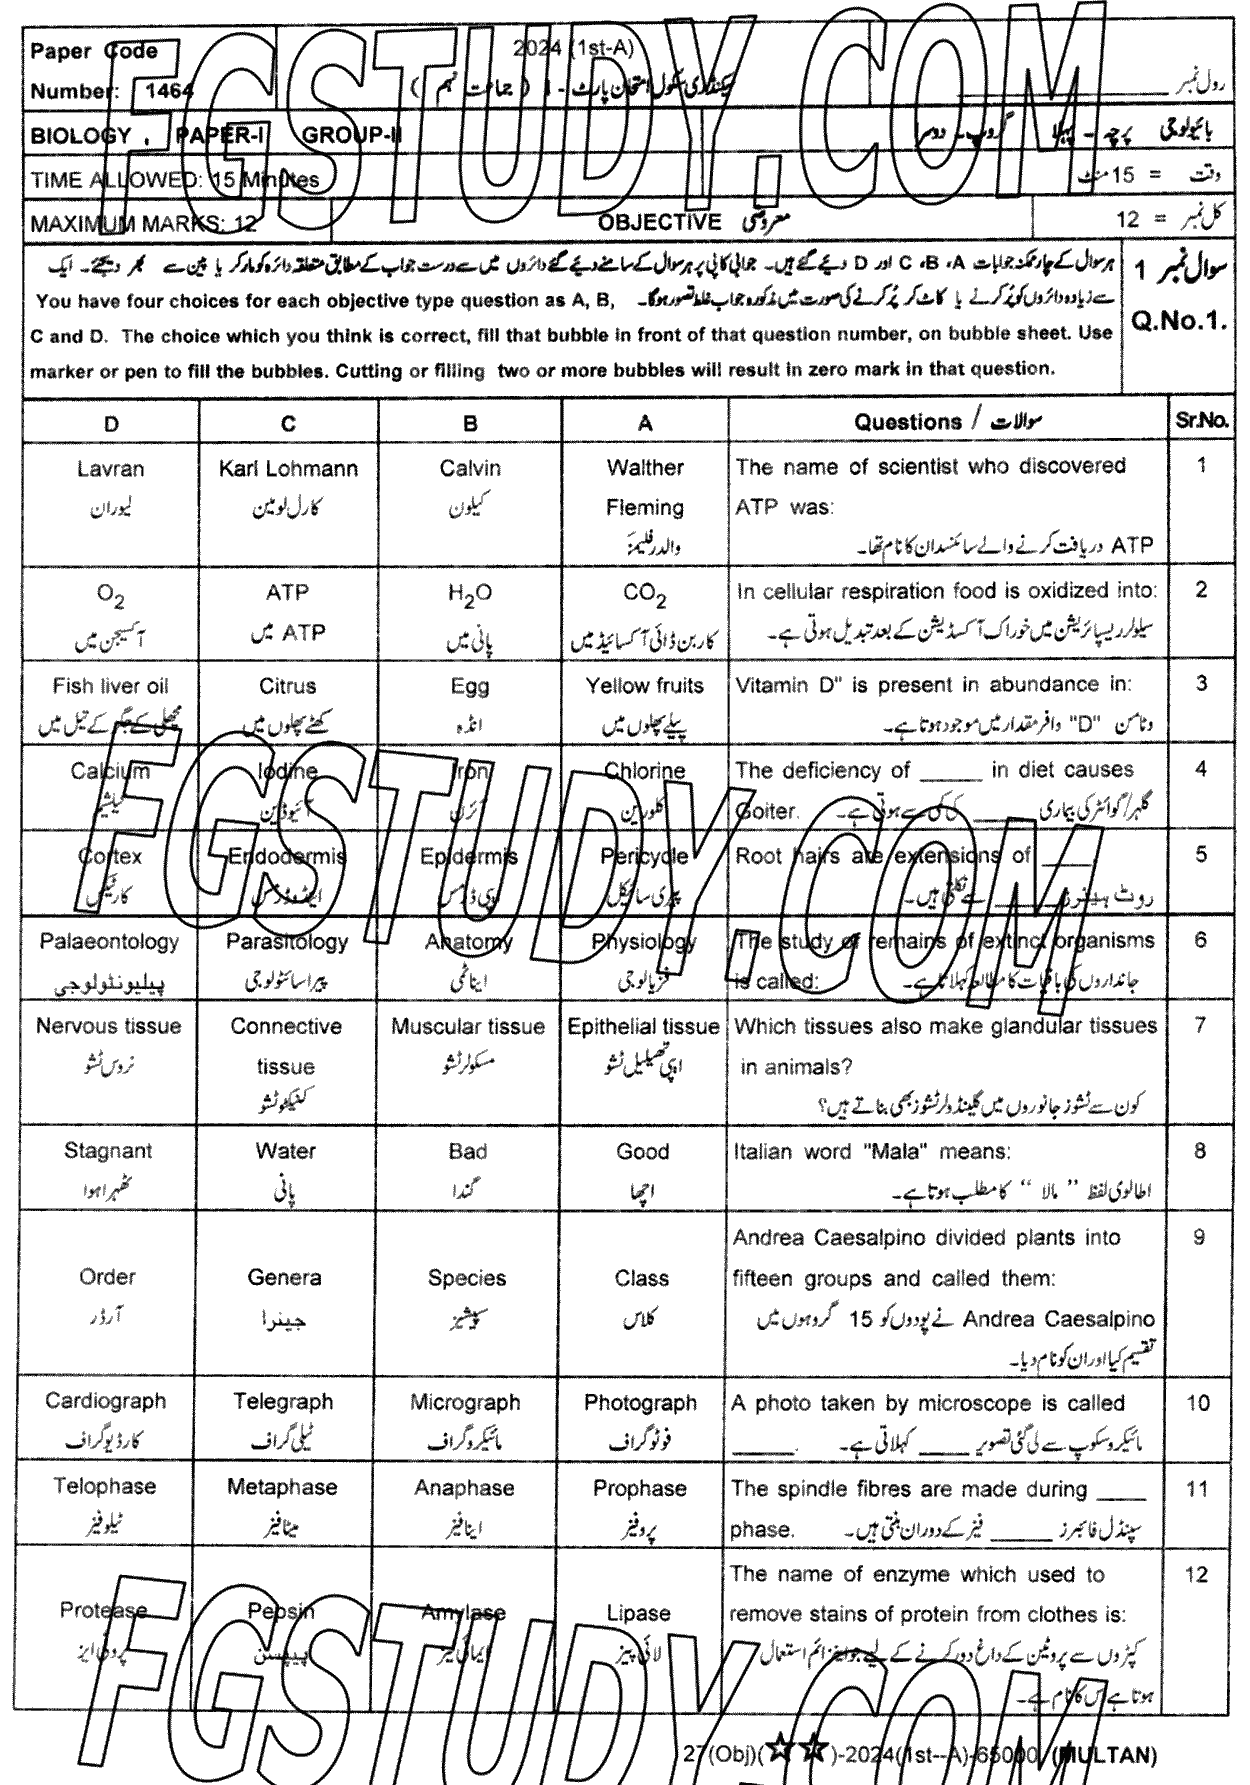 Paper Code
Number: 1464
2024 (1st-A)
سیکنڈری سکول امتحان پارٹ - I ( جماعت نہم )
رول نمبر
BIOLOGY , PAPER-I GROUP-II
بائیولوجی پرچہ - پہلا گروپ - دوسرا
TIME ALLOWED: 15 Minutes
وقت = 15 منٹ
MAXIMUM MARKS: 12
OBJECTIVE معروضی
کل نمبر = 12
سوال نمبر 1
Q.No.1.
ہر سوال کے چار ممکنہ جوابات A ،B ،C اور D دیئے گئے ہیں۔ جوابی کاپی پر ہر سوال کے سامنے دیئے گئے دائروں میں سے درست جواب کے مطابق متعلقہ دائرہ کو مارکر یا پین سے بھر دیجئے۔ ایک
سے زیادہ دائروں کو پُر کرنے یا کاٹ کر پُر کرنے کی صورت میں مذکورہ جواب غلط تصور ہوگا۔ You have four choices for each objective type question as A, B,
C and D. The choice which you think is correct, fill that bubble in front of that question number, on bubble sheet. Use
marker or pen to fill the bubbles. Cutting or filling two or more bubbles will result in zero mark in that question.
D C B A Questions / سوالات Sr.No.
Lavran Karl Lohmann Calvin Walther The name of scientist who discovered 1
لیوران کارل لومین کیلون Fleming ATP was:
والدر فلیمز ATP دریافت کرنے والے سائنسدان کا نام تھا۔
O2 ATP H2O CO2 In cellular respiration food is oxidized into: 2
آکسیجن میں ATP میں پانی میں کاربن ڈائی آکسائیڈ میں سیلولر ریسپائریشن میں خوراک آکسڈیشن کے بعد تبدیل ہوتی ہے۔
Fish liver oil Citrus Egg Yellow fruits Vitamin D" is present in abundance in: 3
مچھلی کے جگر کے تیل میں کھٹے پھلوں میں انڈہ پیلے پھلوں میں وٹامن "D" وافر مقدار میں موجود ہوتا ہے۔
Calcium Iodine Iron Chlorine The deficiency of _____ in diet causes 4
کیلشیم آئیوڈین آئرن کلورین Goiter. گلہڑ/گوائٹر کی بیماری _____ کی کمی سے ہوتی ہے۔
Cortex Endodermis Epidermis Pericycle Root hairs are extensions of ____. 5
کارٹیکس اینڈوڈرمس اپی ڈرمس پیری سائیکل روٹ ہیئرز _____ سے نکلتی ہیں۔
Palaeontology Parasitology Anatomy Physiology The study of remains of extinct organisms 6
پیلیونٹولوجی پیراسائٹولوجی اناٹمی فزیالوجی is called: جانداروں کی باقیات کا مطالعہ کہلاتا ہے۔
Nervous tissue Connective Muscular tissue Epithelial tissue Which tissues also make glandular tissues 7
نروس ٹشو tissue مسکولر ٹشو اپی تھیلیل ٹشو in animals?
کنیکٹو ٹشو کون سے ٹشوز جانوروں میں گلینڈولر ٹشوز بھی بناتے ہیں؟
Stagnant Water Bad Good Italian word "Mala" means: 8
ٹھہرا ہوا پانی گندا اچھا اطالوی لفظ " مالا " کا مطلب ہوتا ہے۔
Andrea Caesalpino divided plants into 9
Order Genera Species Class fifteen groups and called them:
آرڈر جینرا سپیشیز کلاس Andrea Caesalpino نے پودوں کو 15 گروہوں میں
تقسیم کیا اور ان کو نام دیا۔
Cardiograph Telegraph Micrograph Photograph A photo taken by microscope is called 10
کارڈیوگراف ٹیلی گراف مائیکروگراف فوٹوگراف _____. مائیکروسکوپ سے لی گئی تصویر ____ کہلاتی ہے۔
Telophase Metaphase Anaphase Prophase The spindle fibres are made during ____ 11
ٹیلوفیز میٹافیز اینافیز پروفیز phase. سپنڈل فائبرز _____ فیز کے دوران بنتی ہیں۔
The name of enzyme which used to 12
Protease Pepsin Amylase Lipase remove stains of protein from clothes is:
پروٹی ایز پیپسن ایمائی لیز لائی پیز کپڑوں سے پروٹین کے داغ دور کرنے کے لیے جو اینزائم استعمال
ہوتا ہے اس کا نام ہے۔
27(Obj)(☆☆)-2024(1st--A)-65000 (MULTAN)
FGSTUDY.COM
FGSTUDY.COM
FGSTUDY.COM